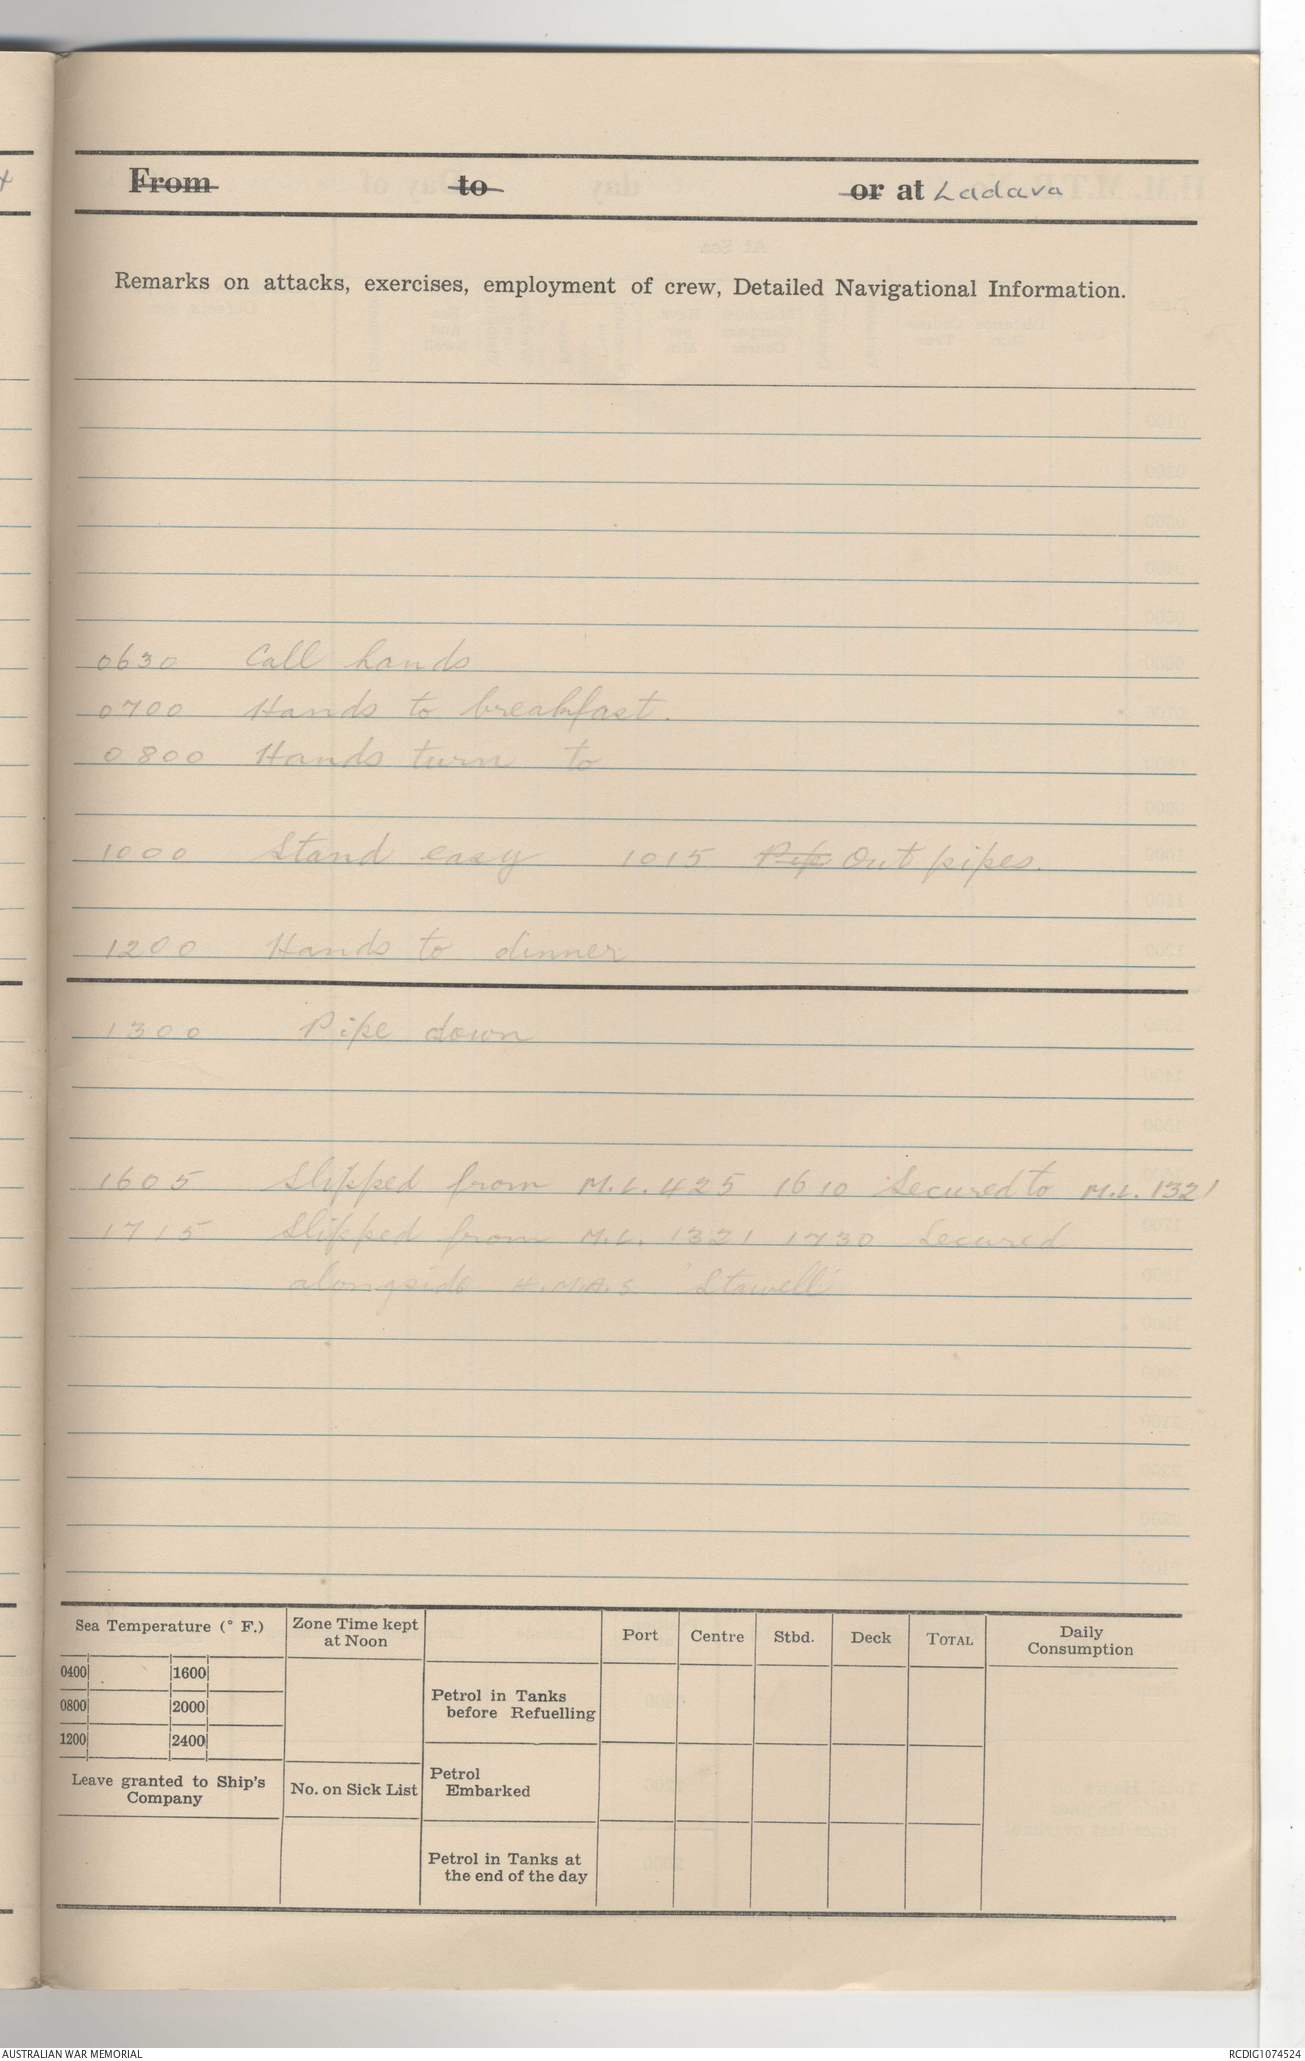 From to or at Ladava
Remarks on attacks, exercises, employment of crew, Detailed Navigational Information.
0630 Call hands
0700 Hands to breakfast.
0800 Hands turn to
1000 Stand easy 1015 Pip Out pipes.
1200 Hands to dinner
1300 Pipe down
1605 Slipped from M.L. 425 1610 Secured to M.L. 1321
1715 Slipped from M.L. 1321 1730 Secured
alongside H.M.A.S. 'Stawell'
Sea Temperature (° F.)
0400 1600
0800 2000
1200 2400
Zone Time kept
at Noon
Port Centre Stbd. Deck TOTAL Daily
Consumption
Petrol in Tanks
before Refuelling
Leave granted to Ship's
Company
No. on Sick List
Petrol
Embarked
Petrol in Tanks at
the end of the day
AUSTRALIAN WAR MEMORIAL
RCDIG1074524